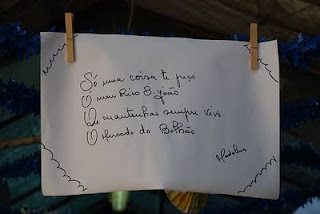 Só uma coisa te peço
Ó meu Rico S. João
Que mantenhas sempre vivo
O Mercado do Bolhão